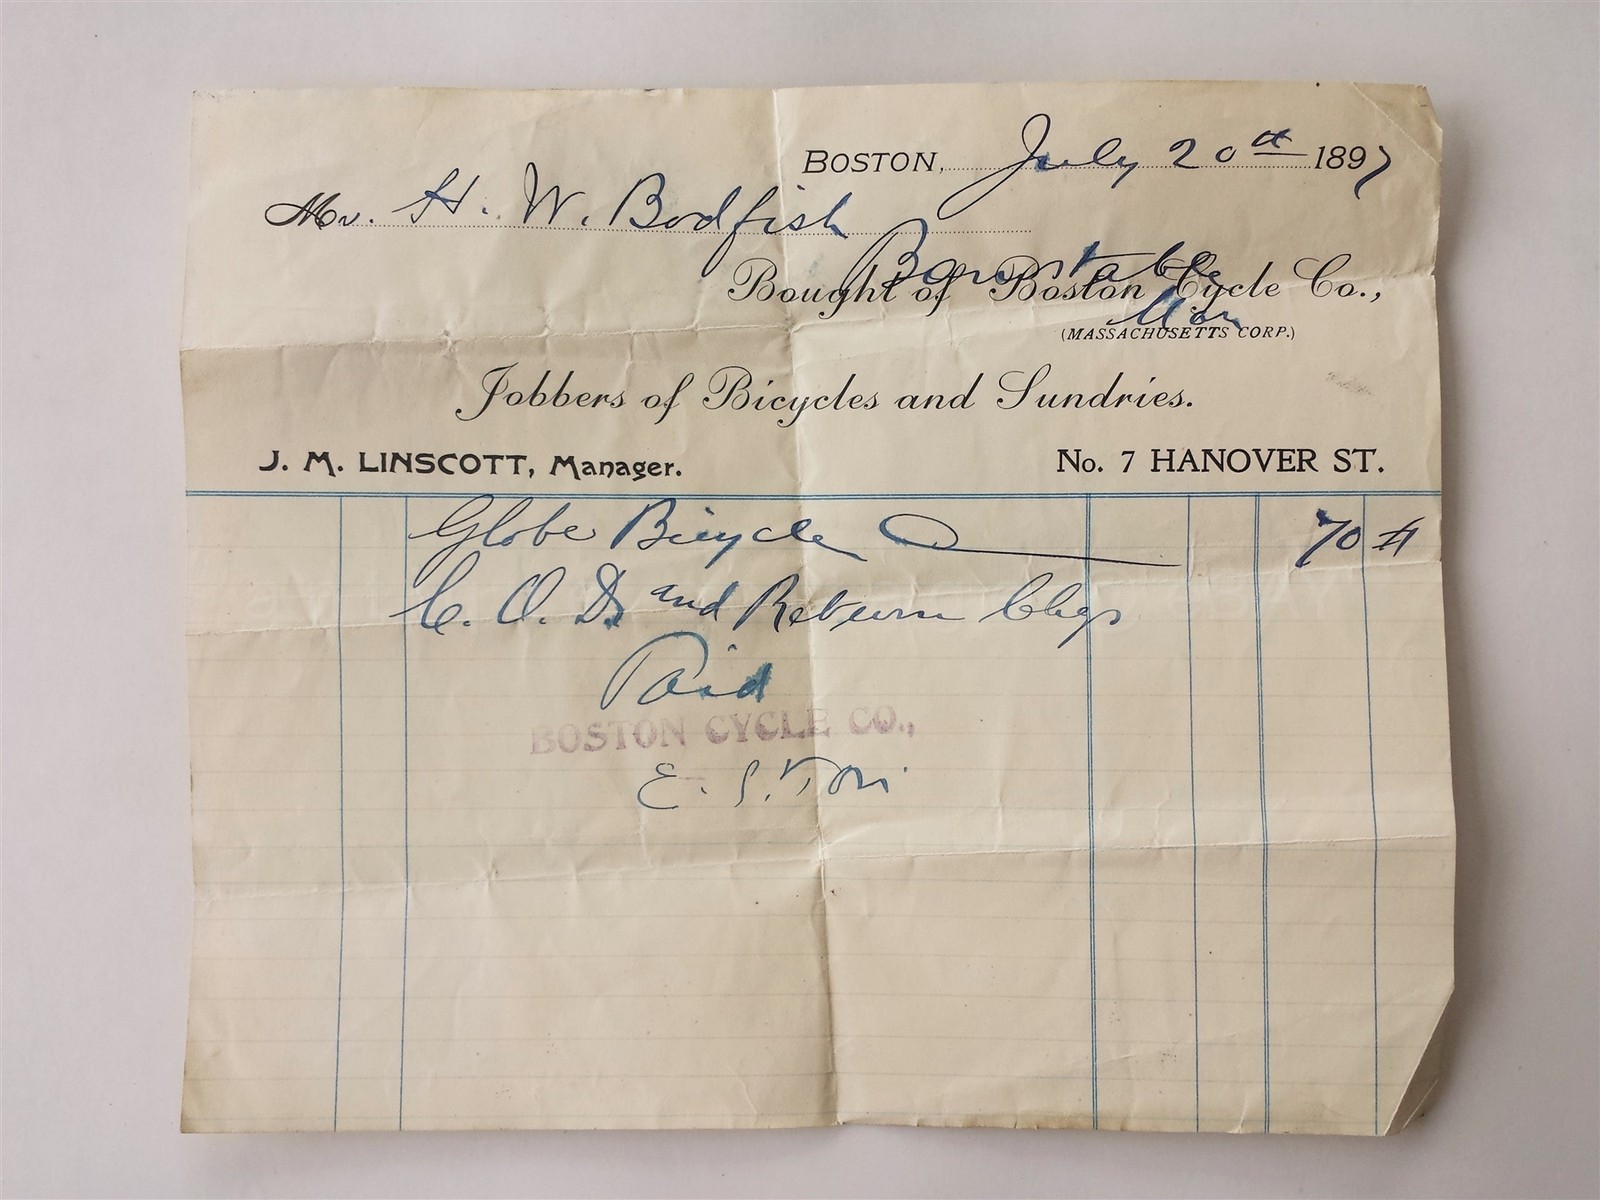 BOSTON, July 20th 1897
Mr. H. W. Bodfish
Barnstable
Bought of Boston Cycle Co.,
Mass
(MASSACHUSETTS CORP.)
Jobbers of Bicycles and Sundries.
J. M. LINSCOTT, Manager. No. 7 HANOVER ST.
Globe Bicycle 70 #
C. O. D. and Return Chgs
Paid
BOSTON CYCLE CO.,
E. S.